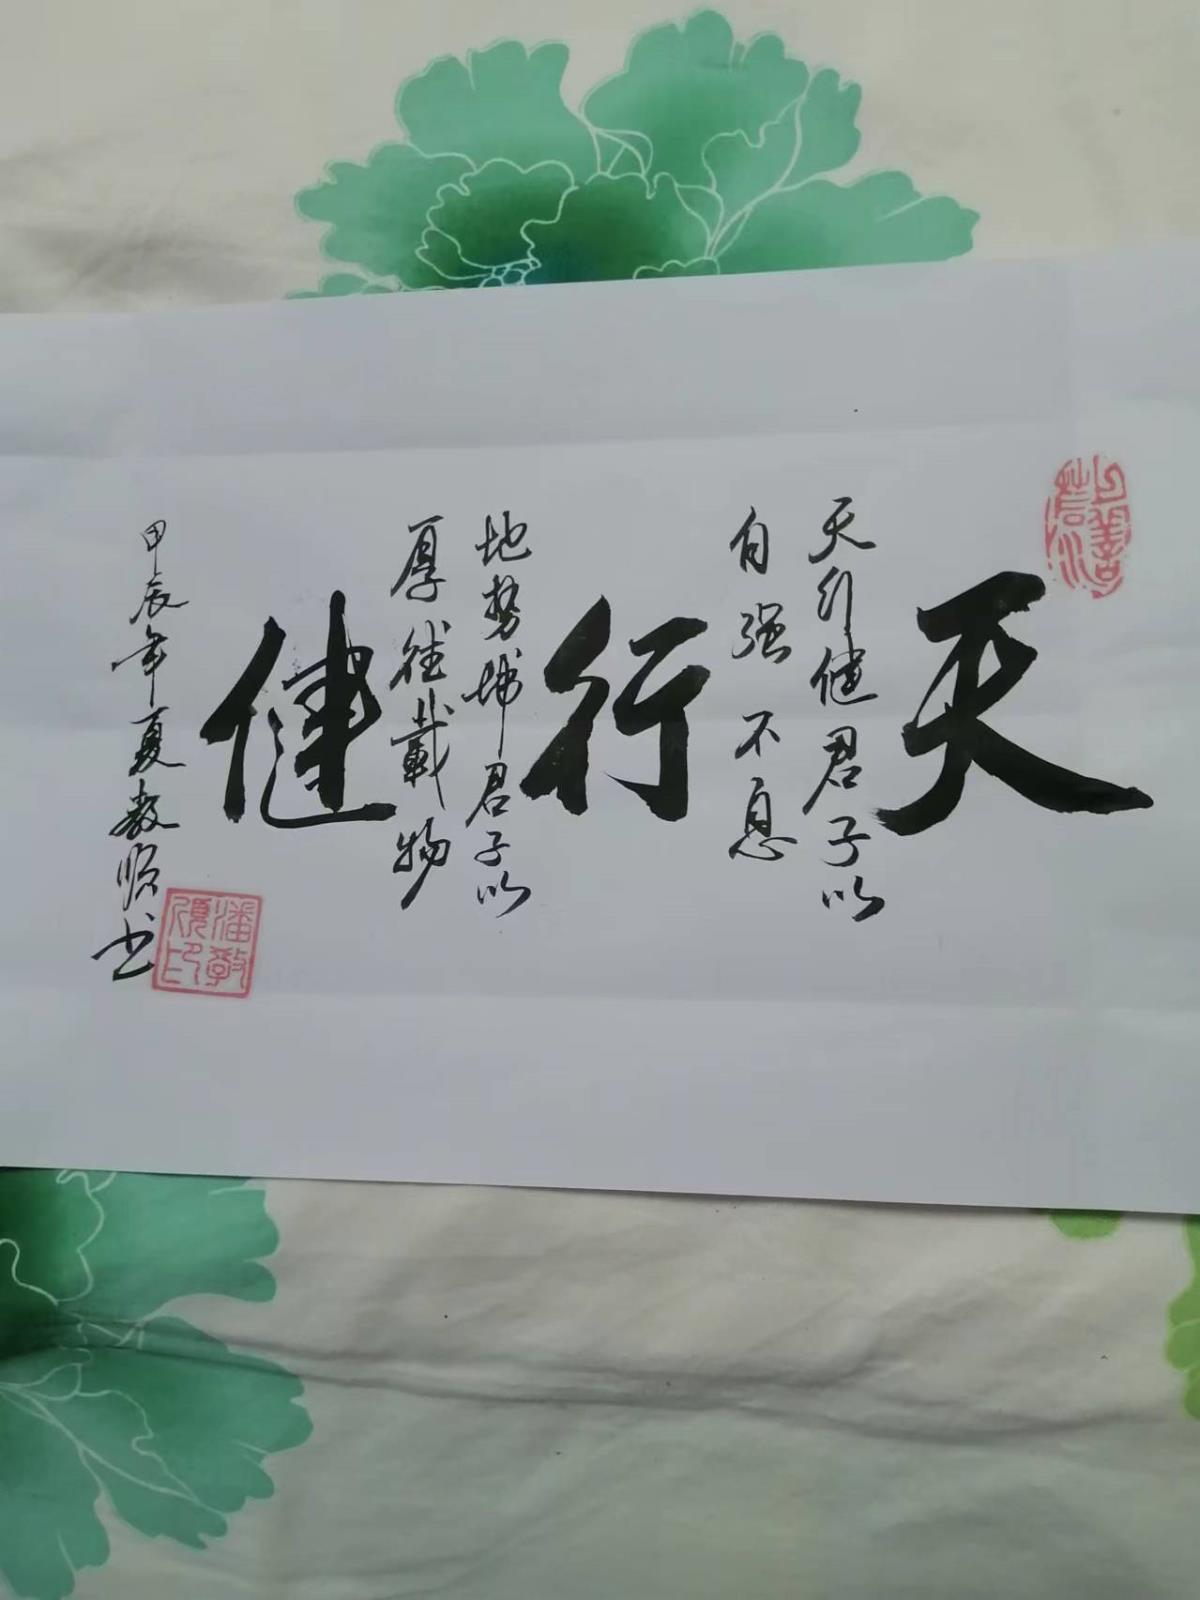 上善若水
天行健
天行健君子以
自强不息
地势坤君子以
厚德載物
甲辰年夏敦顺书
潘敦順印